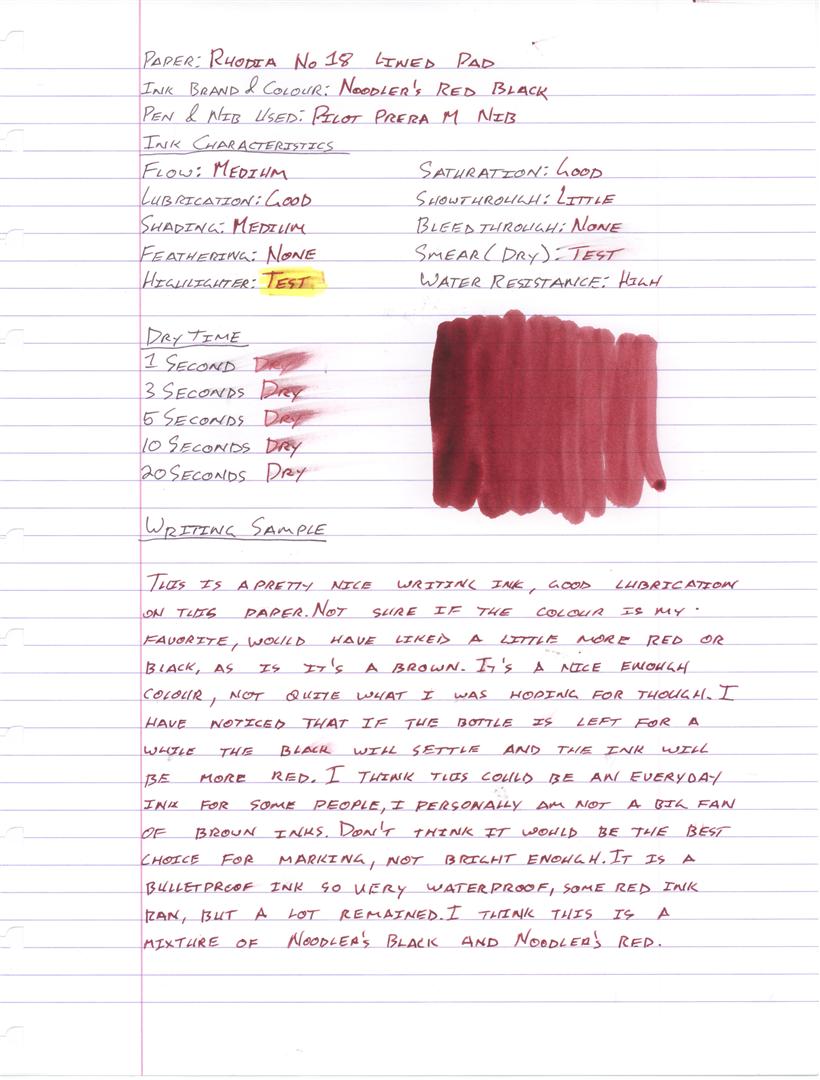 PAPER: RHODIA No 18 LINED PAD
INK BRAND & COLOUR: NOODLER'S RED BLACK
PEN & NIB USED: PILOT PRERA M NIB
INK CHARACTERISTICS
FLOW: MEDIUM SATURATION: GOOD
LUBRICATION: GOOD SHOWTHROUGH: LITTLE
SHADING: MEDIUM BLEEDTHROUGH: NONE
FEATHERING: NONE SMEAR (DRY): TEST
HIGHLIGHTER: TEST WATER RESISTANCE: HIGH
DRY TIME
1 SECOND DRY
3 SECONDS DRY
5 SECONDS DRY
10 SECONDS DRY
20 SECONDS DRY
WRITING SAMPLE
THIS IS A PRETTY NICE WRITING INK, GOOD LUBRICATION
ON THIS PAPER. NOT SURE IF THE COLOUR IS MY
FAVORITE, WOULD HAVE LIKED A LITTLE MORE RED OR
BLACK, AS IS IT'S A BROWN. IT'S A NICE ENOUGH
COLOUR, NOT QUITE WHAT I WAS HOPING FOR THOUGH. I
HAVE NOTICED THAT IF THE BOTTLE IS LEFT FOR A
WHILE THE BLACK WILL SETTLE AND THE INK WILL
BE MORE RED. I THINK THIS COULD BE AN EVERYDAY
INK FOR SOME PEOPLE, I PERSONALLY AM NOT A BIG FAN
OF BROWN INKS. DON'T THINK IT WOULD BE THE BEST
CHOICE FOR MARKING, NOT BRIGHT ENOUGH. IT IS A
BULLETPROOF INK SO VERY WATERPROOF, SOME RED INK
RAN, BUT A LOT REMAINED. I THINK THIS IS A
MIXTURE OF NOODLER'S BLACK AND NOODLER'S RED.